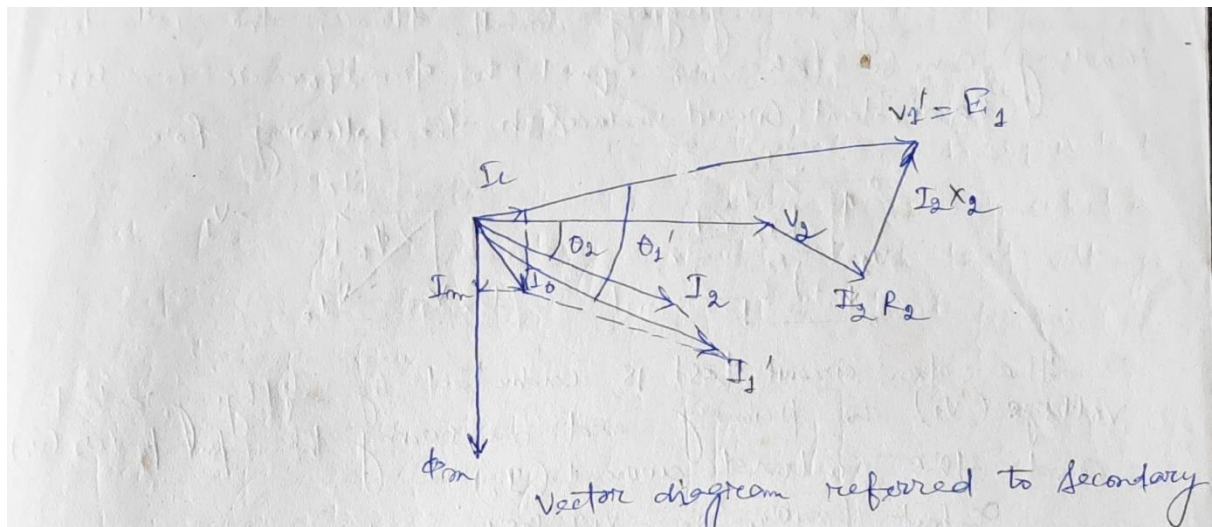 V1' = E1
Ic
I2 X2
V2
θ2
θ1'
Im
I0
I2
I2 R2
I1'
Φm
Vector diagram referred to Secondary